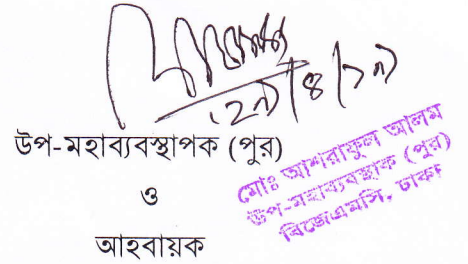 উপ-মহাব্যবস্থাপক (পুর)
ও
আহবায়ক
মোঃ আশরাফুল আলম
উপ-মহাব্যবস্থাপক (পুর)
বিজেএমসি, ঢাকা